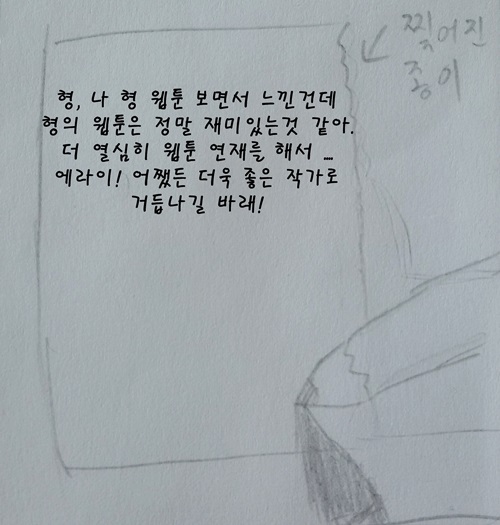 찢어진
종이
형, 나 형 웹툰 보면서 느낀건데
형의 웹툰은 정말 재미있는것 같아.
더 열심히 웹툰 연재를 해서 ...
에라이! 어쨌든 더욱 좋은 작가로
거듭나길 바래!